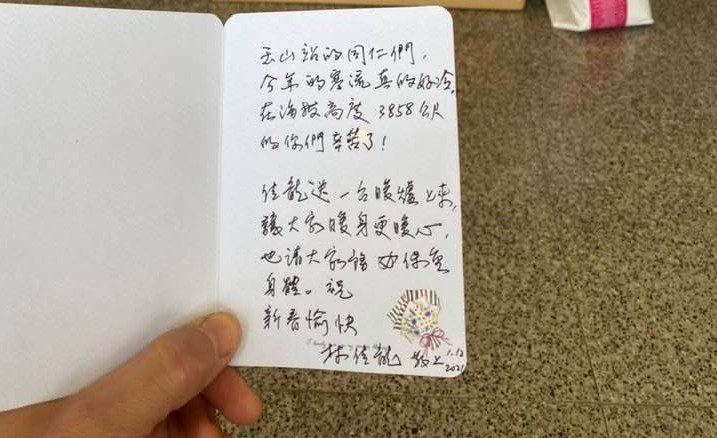 玉山站的同仁們，
今年的寒流真的好冷。
在海拔高度 3858公尺
的你們辛苦了！
佳龍送一台暖爐上來，
讓大家暖身更暖心，
也請大家務必保重
身體。祝
新春愉快
林佳龍 敬上 1.12
2021